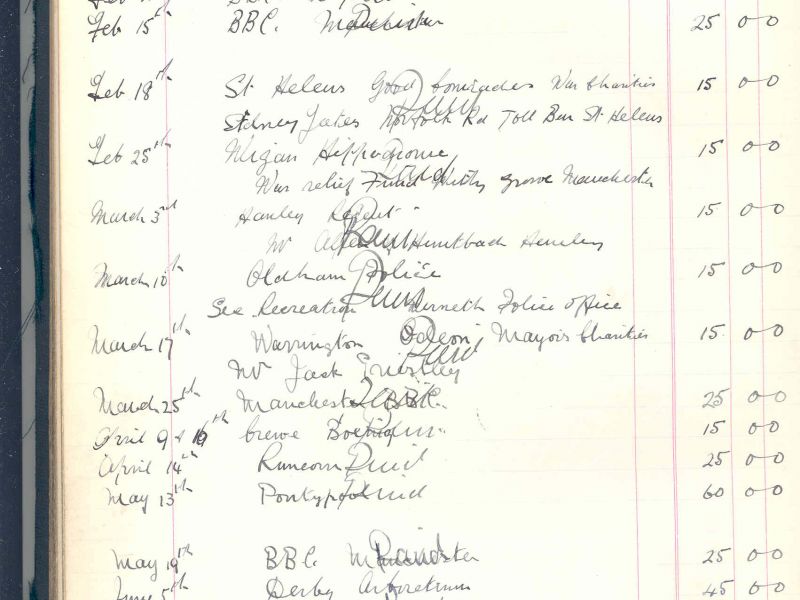 Feb 15th BBC. Manchester Paid 25 0 0
Feb 18th St Helens Good Comrades War Charities 15 0 0
Paid
Sidney Yates Norfolk Rd Toll Bar St Helens
Feb 25th Wigan Hippodrome 15 0 0
Paid
War relief Fund grove Manchester
March 3rd Hanley Regent 15 0 0
Paid
Mr Huntbach Hanley
March 10th Oldham Police 15 0 0
Paid
Sec Recreation Werneth Police office
March 17th Warrington Odeon, Mayors Charities 15 0 0
Paid
Mr Jack
March 25th Manchester BBC. Paid 25 0 0
April 9th crewe Paid 15 0 0
April 14th Runcorn Paid 25 0 0
May 13th Pontypool Paid 60 0 0
May 19th BBC. Manchester Paid 25 0 0
June 5th Derby Arboretum 45 0 0